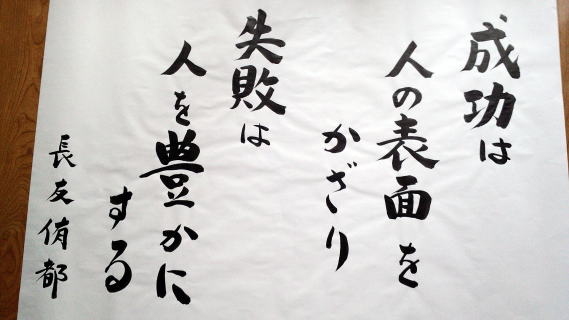 成功は
人の表面を
かざり
失敗は
人を豊かに
する
長友侑都